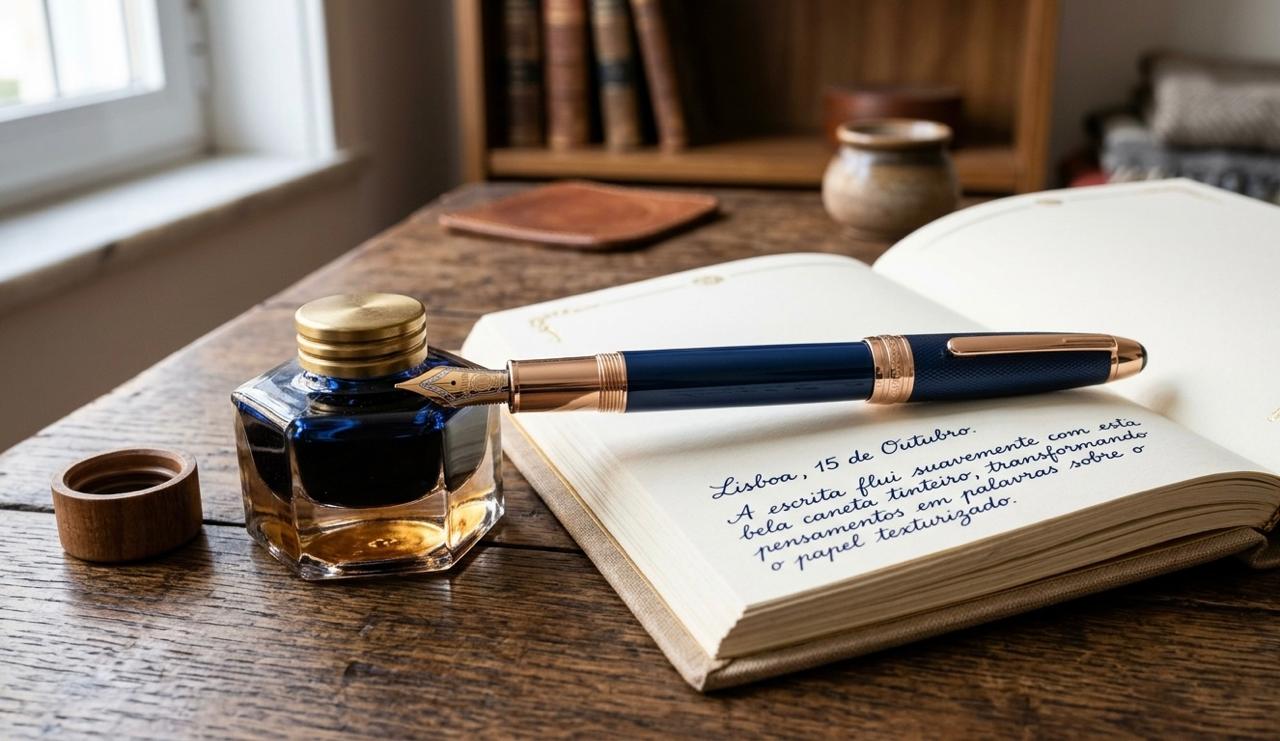 Lisboa, 15 de Outubro.
A escrita flui suavemente com esta
bela caneta tinteiro, transformando
pensamentos em palavras sobre o
o papel texturizado.